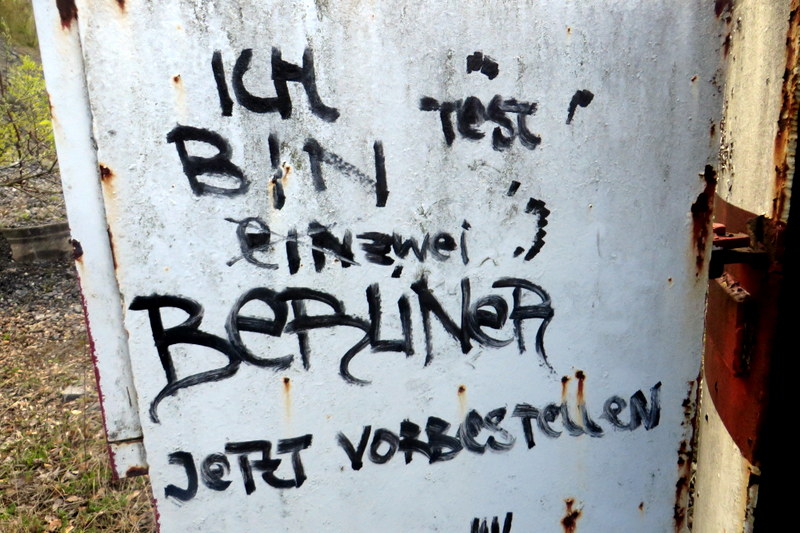 ICH
"TEST"
BIN
EINZWEI ;)
BERLINER
JETZT VORBESTELLEN